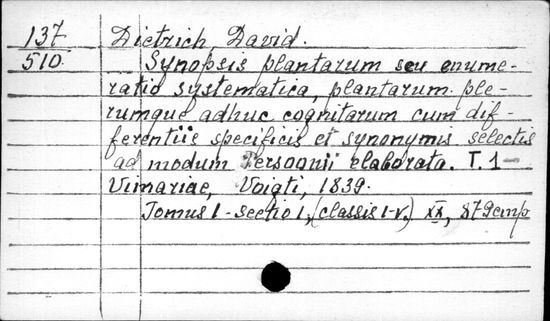 137 Dietrich, David.
510. Synopsis plantarum seu enume-
ratio systematica, plantarum ple-
rumque adhuc cognitarum cum dif-
ferentiis specificis et synonymis selectis
ad modum Persoonii elaborata. T. 1-
Vimariae, Voigti, 1839.
Tomus I - sectio I, (classis I-V.) XX, 879 стр